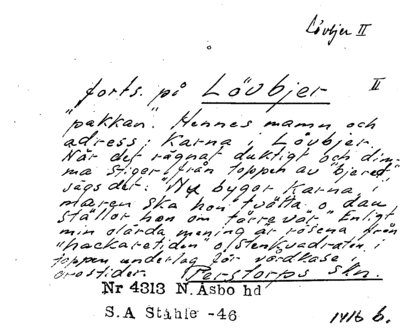 Lövbjer II
forts. på Lövbjer II
"pakkan". Hennes mamn och
adress: Karna i Lövbjer.
När det rägnat duktigt och dim-
ma stiger från toppen av "bjered"
sägs det: "Nu bygor Karna, i
maren ska hon tvätta o dau
ställor hon om torrevär" Enligt
min olärda mening är rösena från
"hackaretiden" o stenkvadraten i
toppen underlag för vårdkase i
orostider. Perstorps skn.
Nr 4313 N. Åsbo hd
S.A Ståhle -46
1416 b.